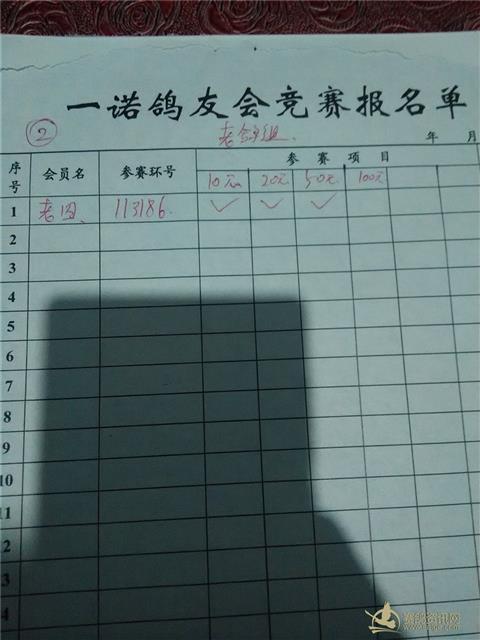 一诺鸽友会竞赛报名单
② 老鸽组.
年 月
序号 会员名 参赛环号 参赛项目
10元 20元 50元 100元
1 113186. ✓ ✓ ✓
2
3
4
5
6
7
8
9
10
11
2
3
4
赛鸽资讯网